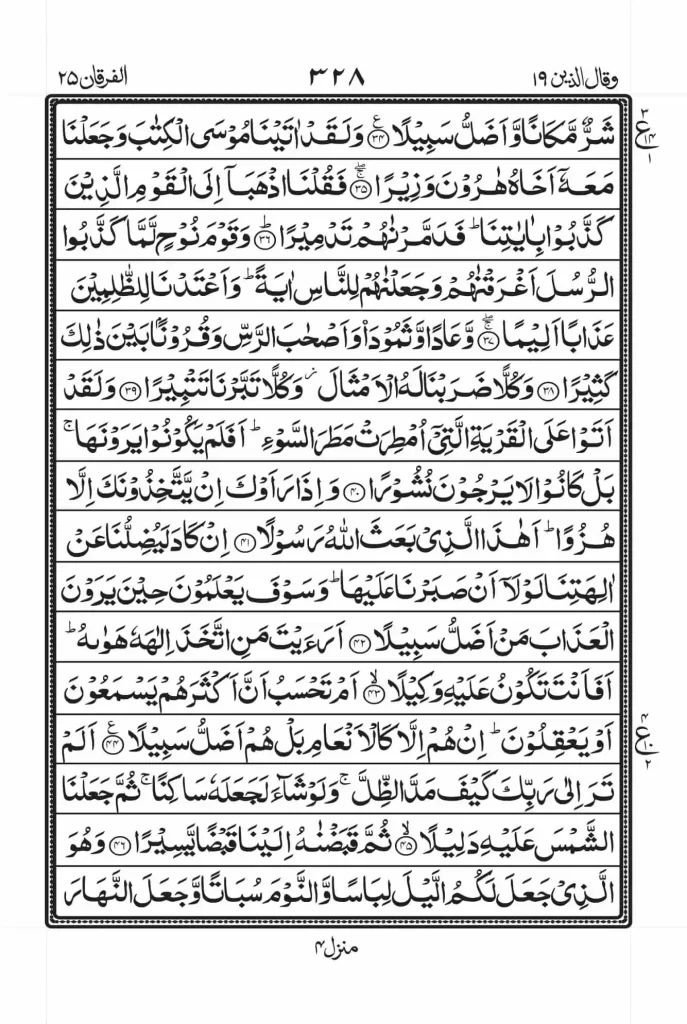 وقال الذین ۱۹ ۳۲۸ الفرقان ۲۵
شَرٌّ مَّكَانًا وَّاَضَلُّ سَبِيْلًا ۟ؒ۳۴ وَلَقَدْ اٰتَيْنَا مُوْسَى الْكِتٰبَ وَجَعَلْنَا
مَعَهٗۤ اَخَاهُ هٰرُوْنَ وَزِيْرًا ۚۖ۳۵ فَقُلْنَا اذْهَبَاۤ اِلَى الْقَوْمِ الَّذِيْنَ
كَذَّبُوْا بِاٰيٰتِنَا ؕ فَدَمَّرْنٰهُمْ تَدْمِيْرًا ؕ۳۶ وَقَوْمَ نُوْحٍ لَّمَّا كَذَّبُوا
الرُّسُلَ اَغْرَقْنٰهُمْ وَجَعَلْنٰهُمْ لِلنَّاسِ اٰيَةً ؕ وَاَعْتَدْنَا لِلظّٰلِمِيْنَ
عَذَابًا اَلِيْمًا ۚۖ۳۷ وَّعَادًا وَّثَمُوْدَا۠ وَاَصْحٰبَ الرَّسِّ وَقُرُوْنًۢا بَيْنَ ذٰلِكَ
كَثِيْرًا ۳۸ وَكُلًّا ضَرَبْنَا لَهُ الْاَمْثَالَ ؗ وَكُلًّا تَبَّرْنَا تَتْبِيْرًا ۳۹ وَلَقَدْ
اَتَوْا عَلَى الْقَرْيَةِ الَّتِيْۤ اُمْطِرَتْ مَطَرَ السَّوْءِ ؕ اَفَلَمْ يَكُوْنُوْا يَرَوْنَهَا ۚ
بَلْ كَانُوْا لَا يَرْجُوْنَ نُشُوْرًا ۴۰ وَاِذَا رَاَوْكَ اِنْ يَّتَّخِذُوْنَكَ اِلَّا
هُزُوًا ؕ اَهٰذَا الَّذِيْ بَعَثَ اللّٰهُ رَسُوْلًا ۴۱ اِنْ كَادَ لَيُضِلُّنَا عَنْ
اٰلِهَتِنَا لَوْلَاۤ اَنْ صَبَرْنَا عَلَيْهَا ؕ وَسَوْفَ يَعْلَمُوْنَ حِيْنَ يَرَوْنَ
الْعَذَابَ مَنْ اَضَلُّ سَبِيْلًا ۴۲ اَرَءَيْتَ مَنِ اتَّخَذَ اِلٰهَهٗ هَوٰىهُ ؕ
اَفَاَنْتَ تَكُوْنُ عَلَيْهِ وَكِيْلًا ۙ۴۳ اَمْ تَحْسَبُ اَنَّ اَكْثَرَهُمْ يَسْمَعُوْنَ
اَوْ يَعْقِلُوْنَ ؕ اِنْ هُمْ اِلَّا كَالْاَنْعَامِ بَلْ هُمْ اَضَلُّ سَبِيْلًا ۟ؒ۴۴ اَلَمْ
تَرَ اِلٰى رَبِّكَ كَيْفَ مَدَّ الظِّلَّ ۚ وَلَوْ شَآءَ لَجَعَلَهٗ سَاكِنًا ۚ ثُمَّ جَعَلْنَا
الشَّمْسَ عَلَيْهِ دَلِيْلًا ۙ۴۵ ثُمَّ قَبَضْنٰهُ اِلَيْنَا قَبْضًا يَّسِيْرًا ۴۶ وَهُوَ
الَّذِيْ جَعَلَ لَكُمُ الَّيْلَ لِبَاسًا وَّالنَّوْمَ سُبَاتًا وَّجَعَلَ النَّهَارَ
۳ ع ۱۴ ۱
۴ ع ۱۰ ۲
منزل ۴